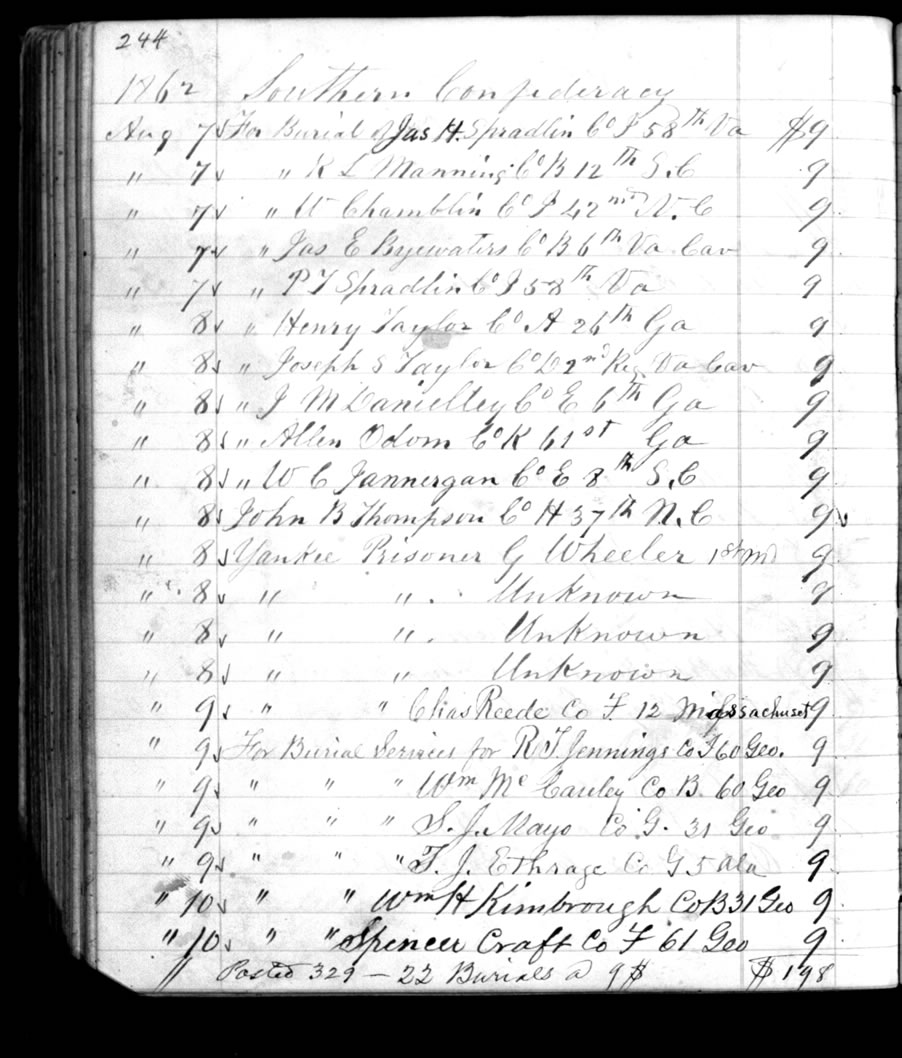 244
1862 Southern Confederacy
Aug 7 For Burial of Jas H. Spradlin Co I 58th Va $9
" 7 " K L Manning Co B 12th S.C 9
" 7 " W Chamblin Co I 42nd N.C 9
" 7 " Jas E Byewaters Co B 6th Va Cav 9
" 7 " P T Spradlin Co I 58th Va 9
" 8 " Henry Taylor Co A 26th Ga 9
" 8 " Joseph S Taylor Co D 2nd Reg Va Cav 9
" 8 " J M Danielley Co E 6th Ga 9
" 8 " Allen Odom Co K 61st Ga 9
" 8 " W C Jannergan Co E 8th S.C 9
" 8 John B Thompson Co H 37th N.C 9
" 8 Yankee Prisoner G Wheeler 1st Md 9
" 8 " " Unknown 9
" 8 " " Unknown 9
" 8 " " Unknown 9
" 9 " " Chas Reede Co F 12 Massachuset 9
" 9 For Burial Services for R T. Jennings Co I 60 Geo. 9
" 9 " " " Wm Mc Cauley Co B. 60 Geo 9
" 9 " " " S. J. Mayo Co G. 31 Geo 9
" 9 " " " T. J. Ethrage Co G 5 Ala 9
" 10 " " Wm H Kimbrough Co B 31 Geo 9
" 10 " " Spencer Craft Co F 61 Geo 9
" Posted 329 — 22 Burials a 9$ $198